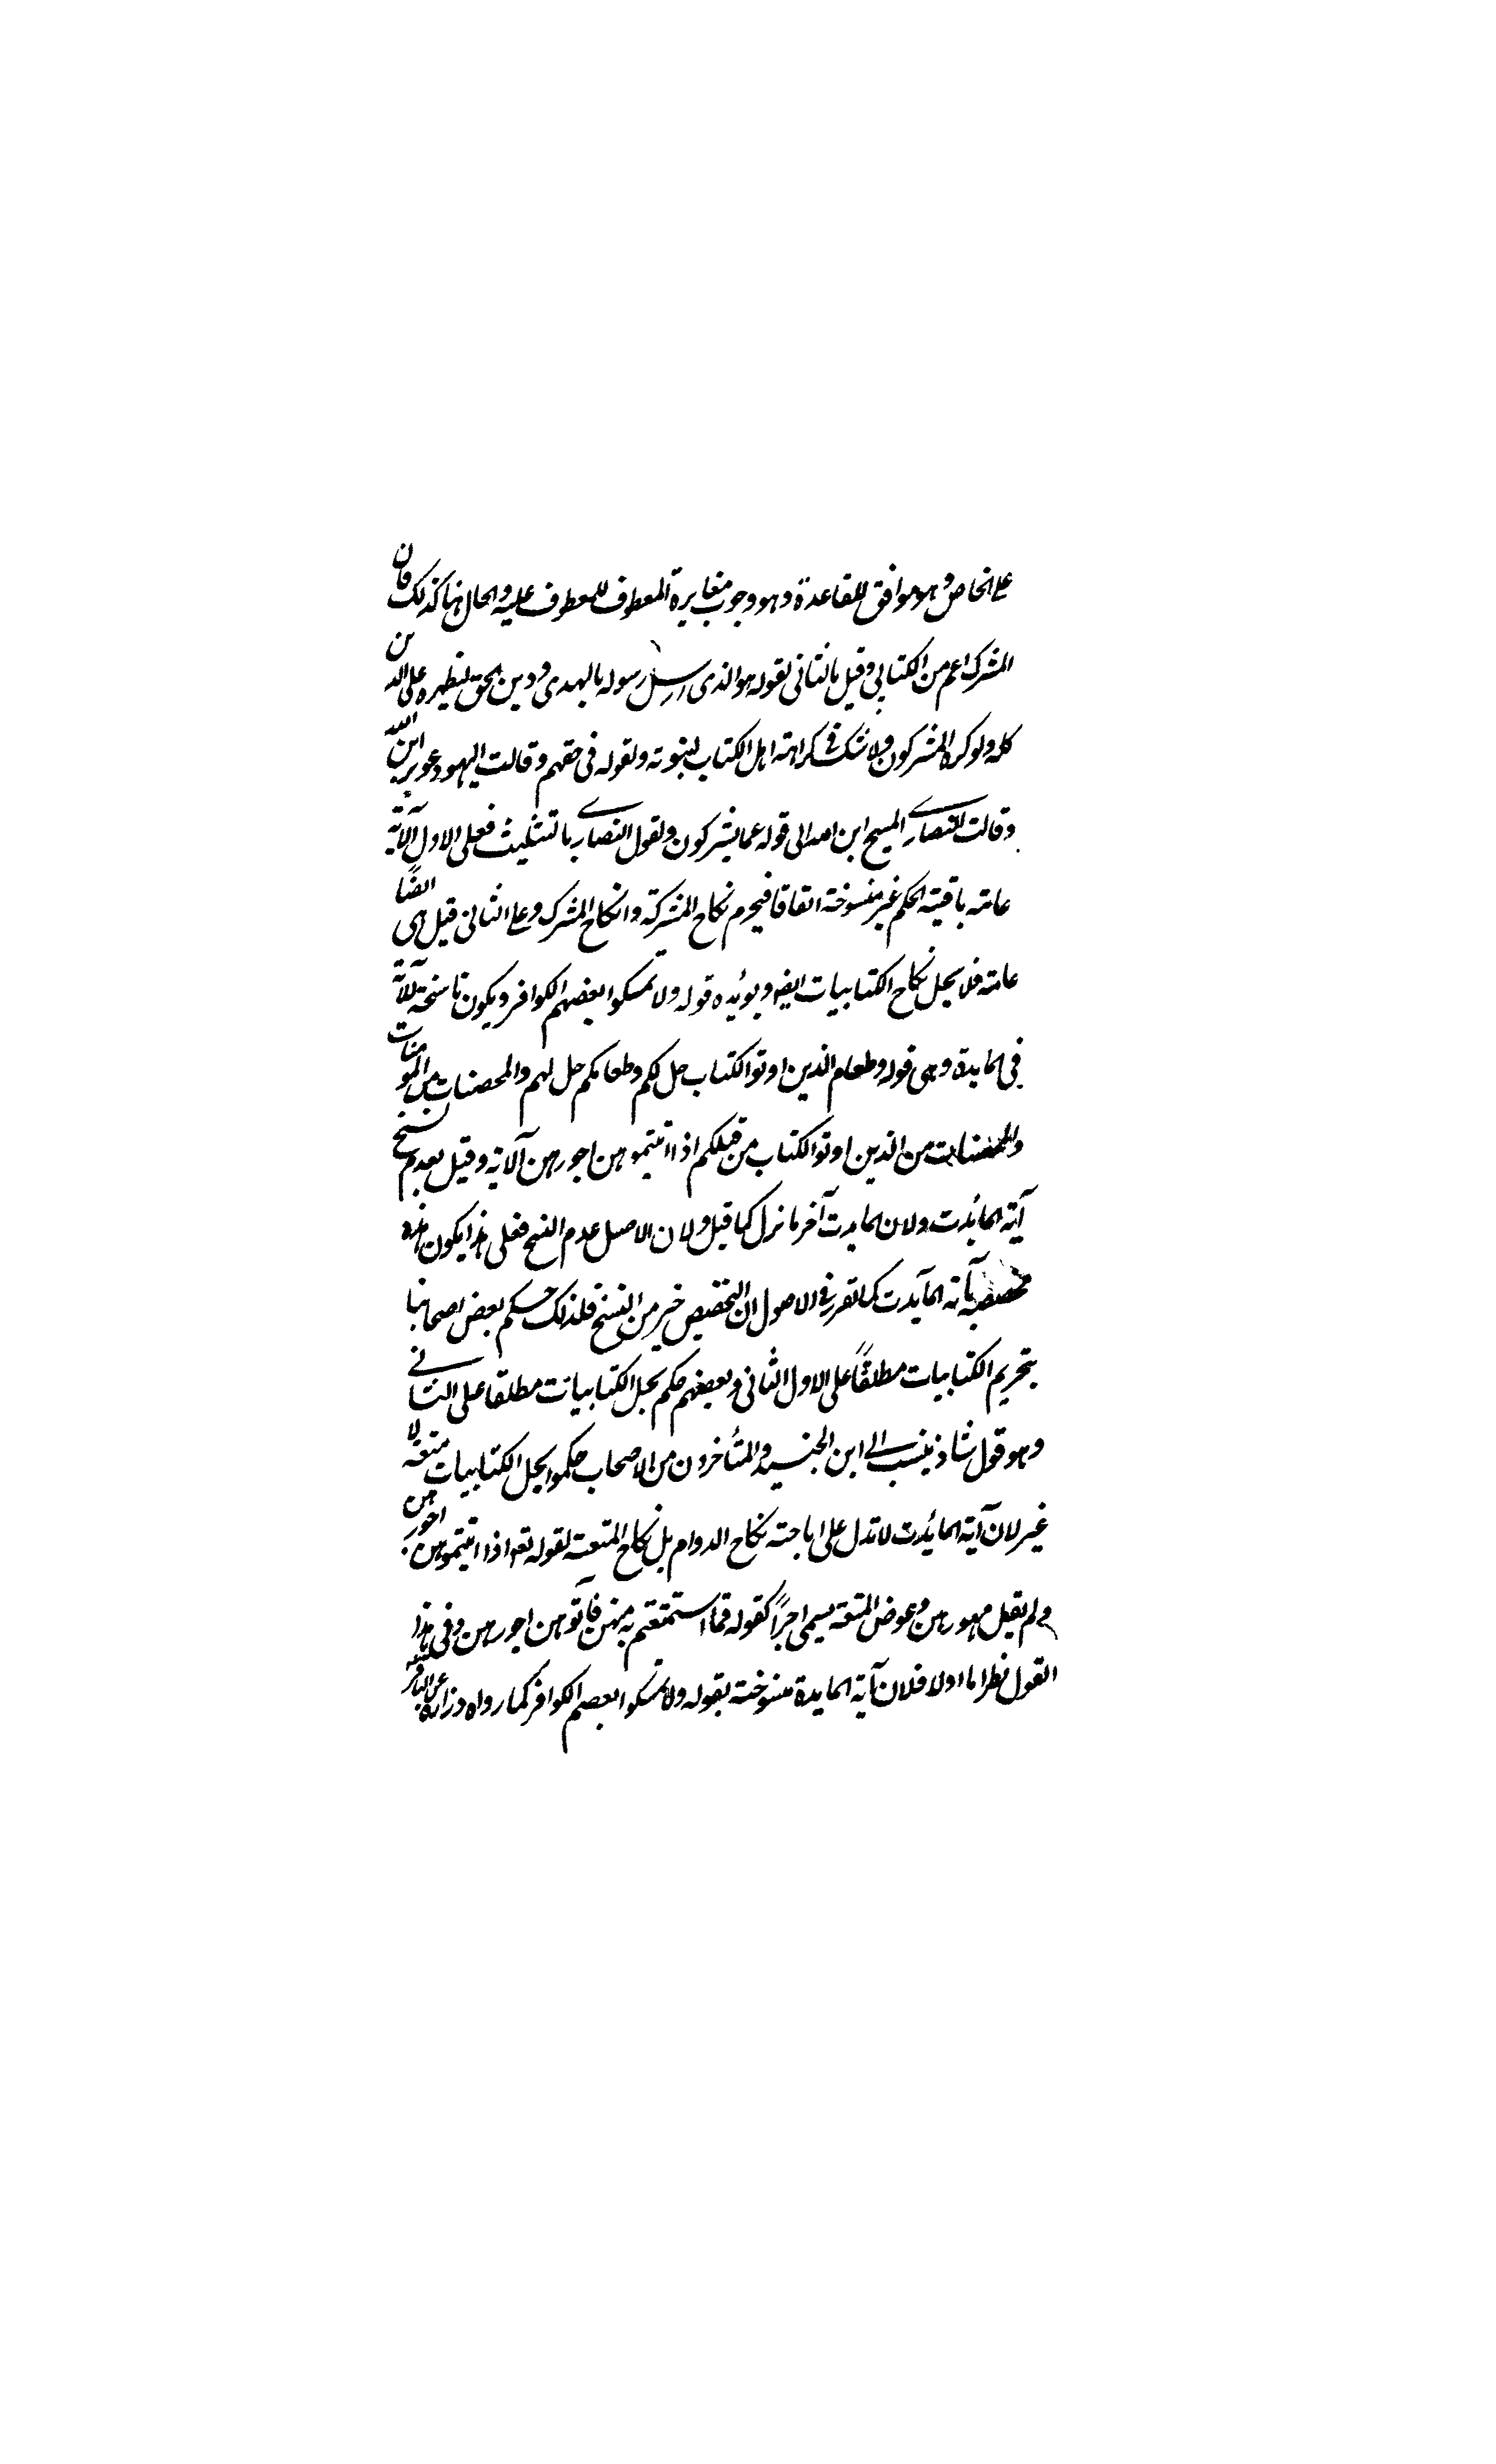 على الخاص وهو موافق للقاعدة وهو وجوب مغايرة المعطوف للمعطوف عليه والحال هنا كذلك فان
المشرك اعم من الكتابي وقيل بالثاني لقوله هو الذى ارسل رسوله بالهدى ودين الحق ليظهره على الدين
كله ولو كره المشركون ولا شك في كراهته اهل الكتاب لنبوته ولقوله فى حقهم وقالت اليهود عزير ابن الله
وقالت النصارى المسيح ابن الله الى قوله عما يشركون ولقول النصارى بالتثليث فعلى الاول الآية
عامة باقية الحكم غير منسوخة اتفاقا فيحرم نكاح المشركة وانكاح المشرك وعلى الثانى قيل هى ايضًا
عامة فلا يحل نكاح الكتابيات ايضا ويؤيده قوله ولا تمسكوا بعصم الكوافر ويكون ناسخة للآية
فى المايدة وهى قوله وطعام الذين اوتوا الكتاب حل لكم وطعامكم حل لهم والمحصنات من المؤمنات
والمحصنات من الذين اوتوا الكتاب من قبلكم اذا اتيتموهن اجورهن الآية وقيل بعدم نسخ
آية المائدت ولان المايدت آخر ما نزل كما قيل ولان الاصل عدم النسخ فعلى هذا يكون هذه
مخصصة بآية المآيدت كما تقرر فى الاصول ان التخصيص خير من النسخ فلذلك حكم بعض اصحابنا
بتحريم الكتابيات مطلقًا على الاول الثانى وبعضهم حكم بحل الكتابيات مطلقا على الثانى
وهو قول شاذ ينسب الى ابن الجنيد والمتأخرون من الاصحاب حكموا بحل الكتابيات متعة لا
غير لان آية المائدت لا تدل على اباحة نكاح الدوام بل نكاح المتعة لقوله تعه اذا اتيتموهن اجورهن
ولم يقل مهورهن وعوض المتعة يسمى اجرًا كقوله فما استمتعتم به منهن فآتوهن اجورهن وفى هذا
القول نظر اما اولا فلان آية المايدة منسوخة بقوله ولا تمسكوا بعصم الكوافر كما رواه زرارة عن الباقر